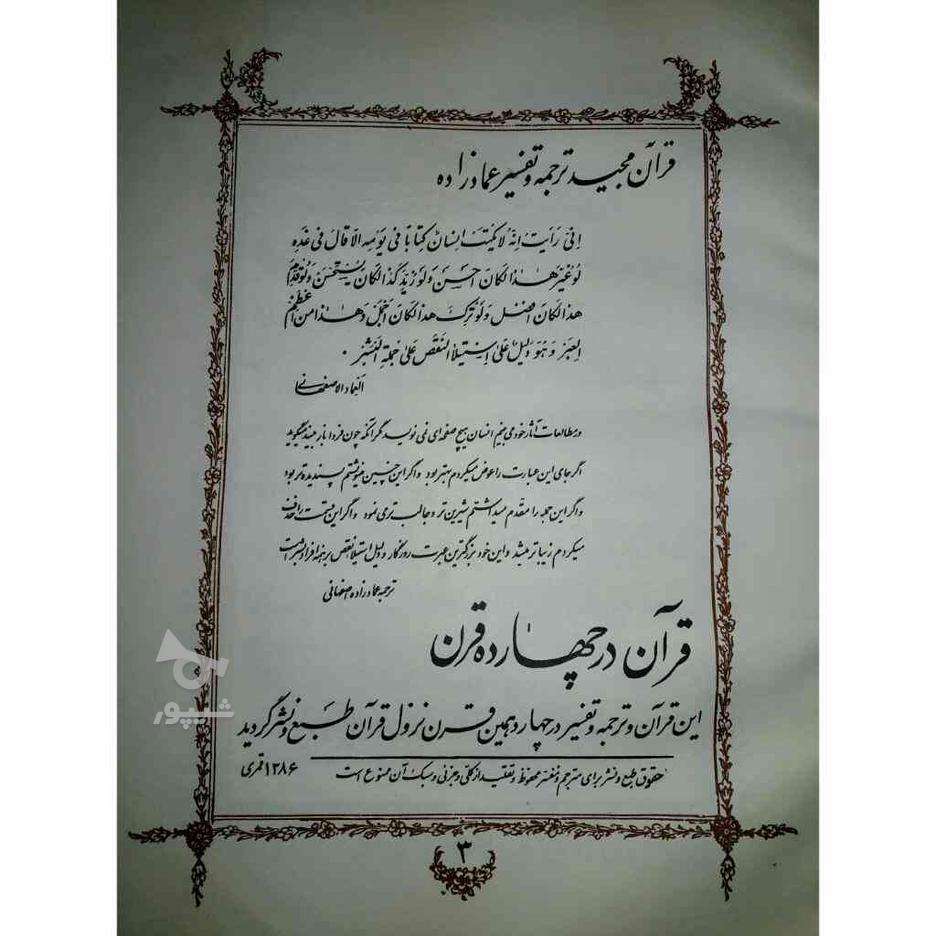 قرآن مجید ترجمه و تفسیر عمادزاده
اِنّی رَأَیتُ اِنَّهُ لا یَکتُبُ اِنسانٌ کِتاباً فی یَومِه اِلّا قالَ فی غَدِه
لَو غُیِّرَ هٰذا لَکانَ اَحسَن وَلَو زیدَ کَذا لَکانَ یُستَحسَن وَلَو قُدِّمَ
هذا لَکانَ افضَل وَلَو تُرِکَ هذا لَکانَ اَجمَل وَ هٰذا مِن اَعظَمِ
العِبَر وَ هُوَ دَلیلٌ عَلیٰ اِستیلاءِ النَّقصِ عَلیٰ جُملَةِ البَشَر .
العماد الاصفهانی
در مطالعات آثار خود می بینم انسان هیچ صفحه‌ای نمی نویسد مگر آنکه چون فردا باز بیند میگوید
اگر جای این عبارت را عوض میکردم بهتر بود و اگر این چنین مینوشتم پسندیده‌تر بود
و اگر این جمله را مقدّم میداشتم شیرین تر و جالب تر می نمود و اگر این قسمت را حذف
میکردم زیباتر میشد و این خود بزرگترین عبرت روزگار و دلیل استیلاء نقص بر همه افراد بشر است
ترجمه عمادزاده اصفهانی
قرآن در چهارده قرن
این قرآن و ترجمه و تفسیر در چهاردهمین قرن نزول قرآن طبع و نشر گردید
حقوق طبع و نشر برای مترجم و مفسّر محفوظ و تقلید از کلّی و جزئی و سبک آن ممنوع است
۱۳۸۶ قمری
۳
شیپور